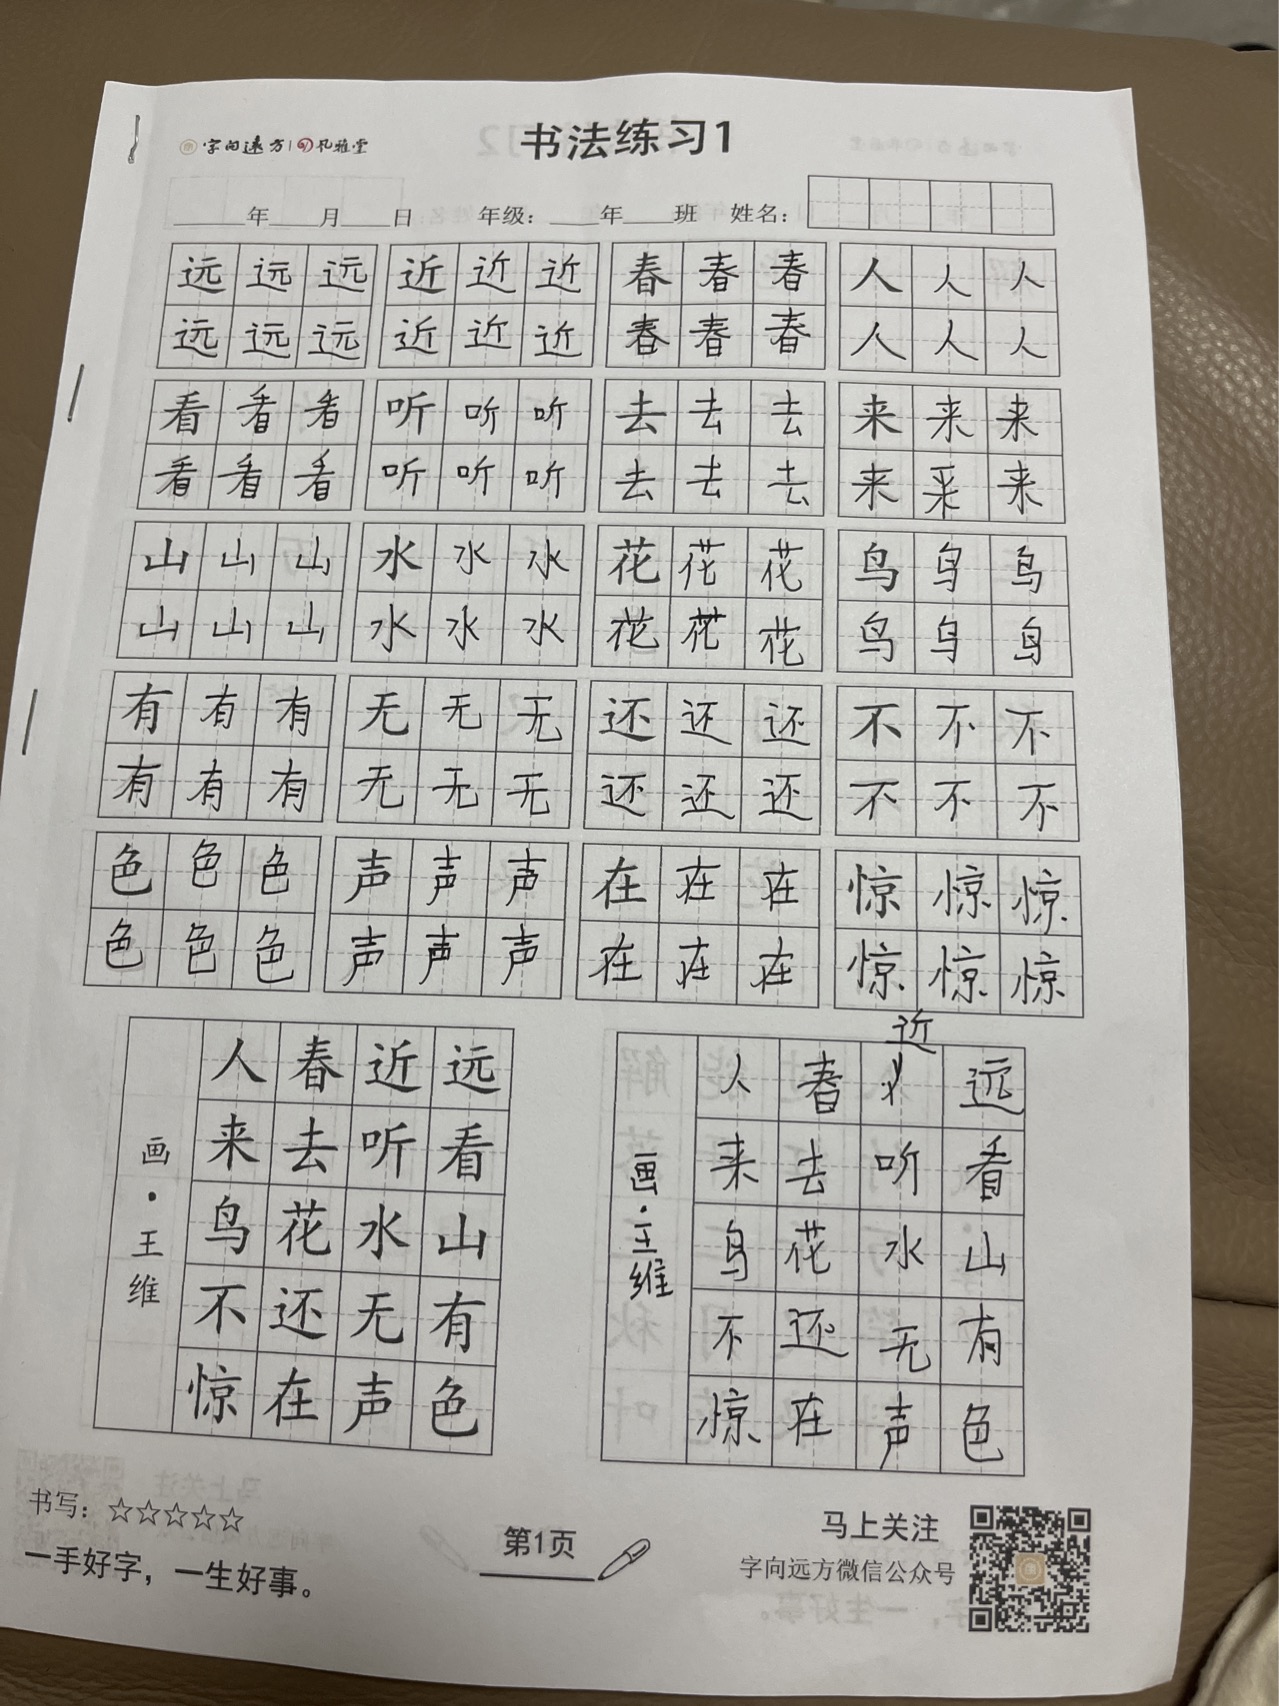 字向远方 孔雅堂
书法练习1
年 月 日 年级： 年 班 姓名：
远远远 近近近 春春春 人人人
远远远 近近近 春春春 人人人
看看看 听听听 去去去 来来来
看看看 听听听 去去去 来来来
山山山 水水水 花花花 鸟鸟鸟
山山山 水水水 花花花 鸟鸟鸟
有有有 无无无 还还还 不不不
有有有 无无无 还还还 不不不
色色色 声声声 在在在 惊惊惊
色色色 声声声 在在在 惊惊惊
远看山有色
近听水无声
春去花还在
人来鸟不惊
画·王维
远看山有色
近听水无声
春去花还在
人来鸟不惊
画·王维
书写：☆☆☆☆☆
一手好字，一生好事。
第1页
马上关注
字向远方微信公众号